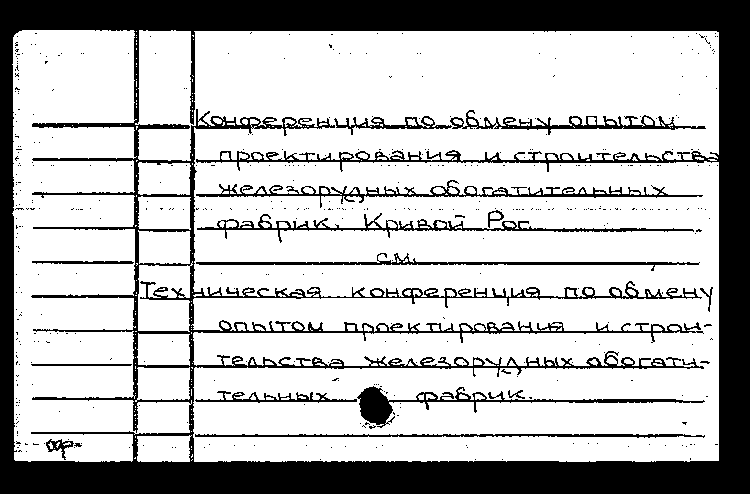 Конференция по обмену опытом
проектирования и строительства
железорудных обогатительных
фабрик. Кривой Рог.
см.
Техническая конференция по обмену
опытом проектирования и строи-
тельства железорудных обогати-
тельных фабрик.